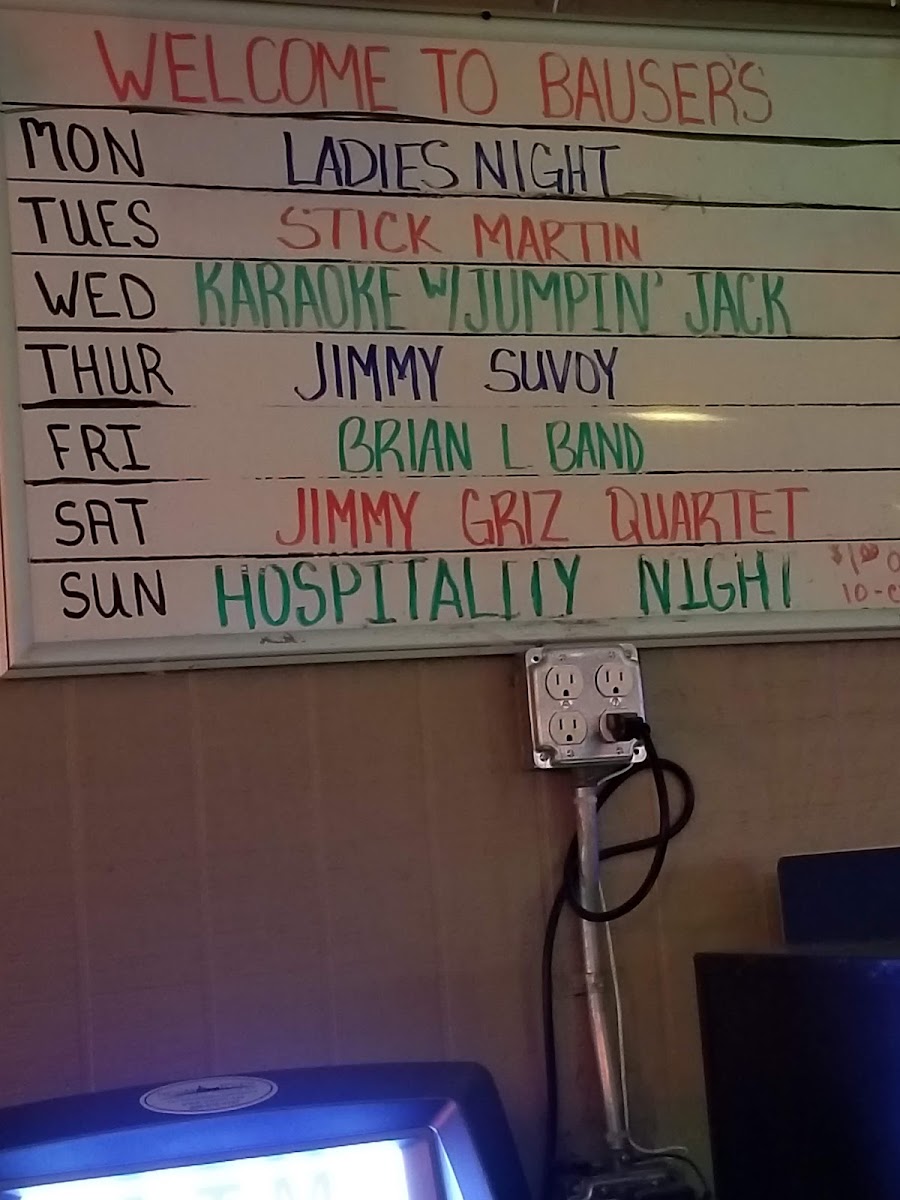 WELCOME TO BAUSER'S
MON LADIES NIGHT
TUES STICK MARTIN
WED KARAOKE W/JUMPIN' JACK
THUR JIMMY SUVOY
FRI BRIAN L BAND
SAT JIMMY GRIZ QUARTET
SUN HOSPITALITY NIGHT $1.00
10-
ATM